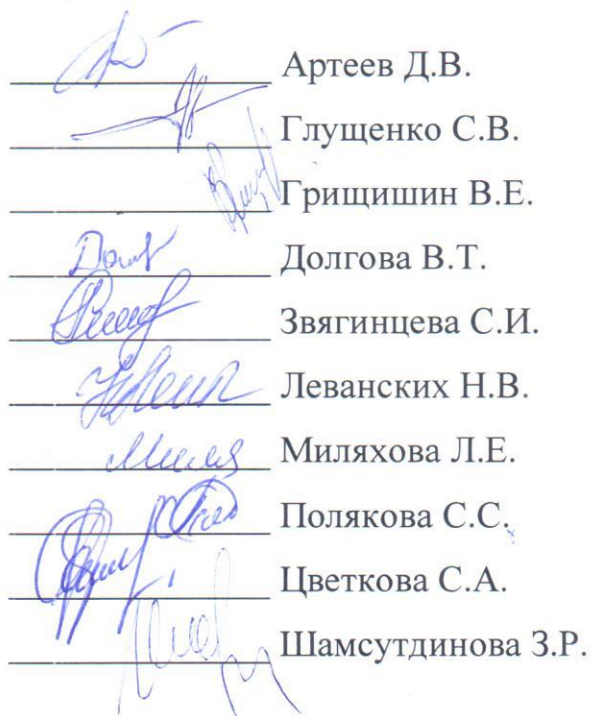 Артеев Д.В.
Глущенко С.В.
Грищишин В.Е.
Долгова В.Т.
Звягинцева С.И.
Леванских Н.В.
Миляхова Л.Е.
Полякова С.С.
Цветкова С.А.
Шамсутдинова З.Р.